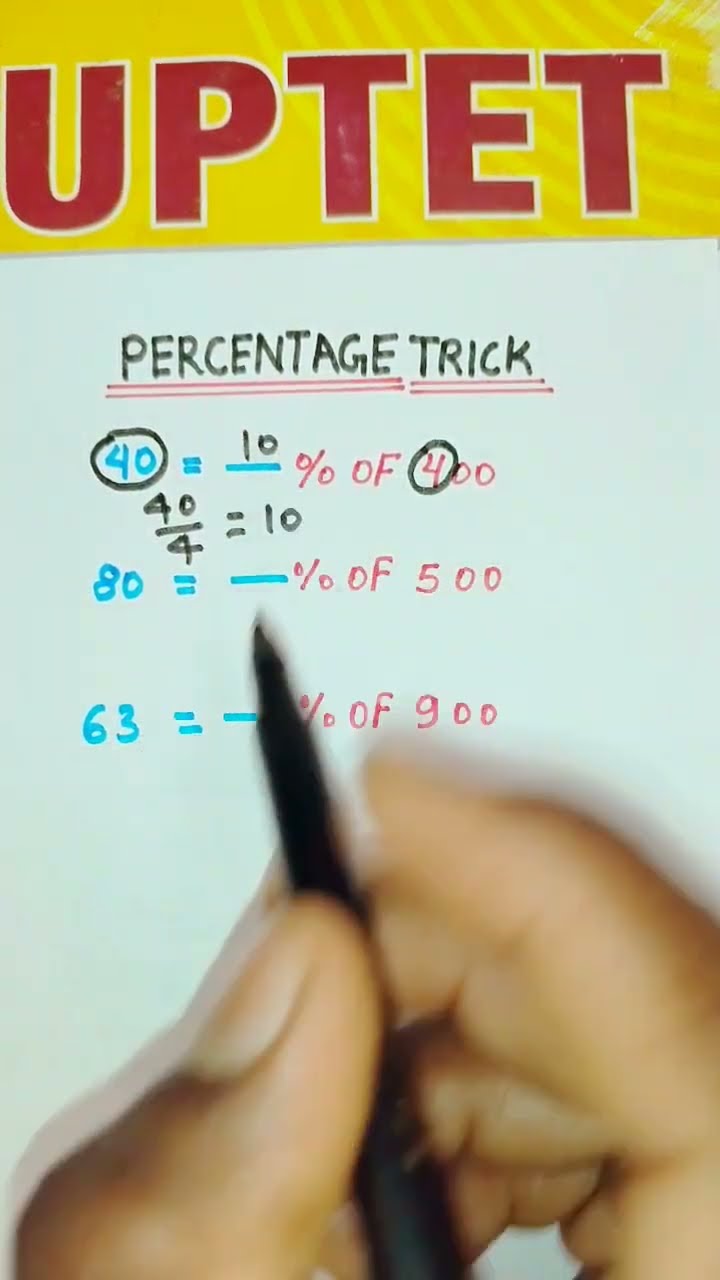 UPTET
PERCENTAGE TRICK
40 = 10 % OF 400
40/4 = 10
80 = __% OF 500
63 = __% OF 900